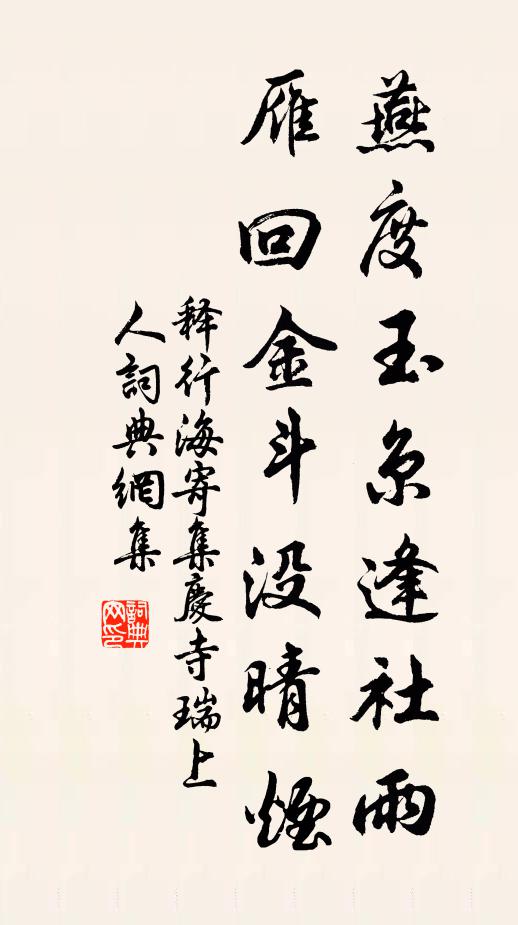 燕度玉京逢社雨
雁回金斗没晴煙
释行海寄集慶寺瑞上
人詞典網集
詞典
网印